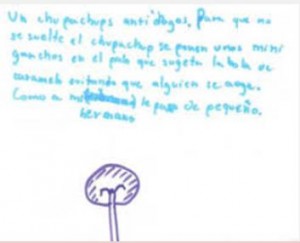 Un chupachups antiahogos. Para que no
se suelte el chupachup se ponen unos mini
ganchos en el palo que sujeta la bola de
caramelo evitando que alguien se ahogue.
Como a mi le pasó de pequeño.
hermano